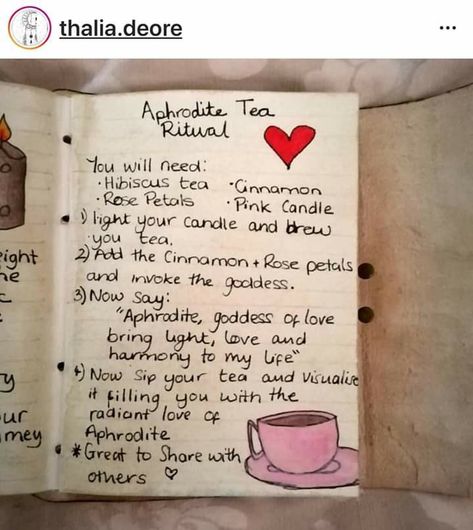 thalia.deore
Aphrodite Tea
Ritual
You will need:
· Hibiscus tea · Cinnamon
· Rose Petals · Pink Candle
1) light your candle and brew
you tea.
2) Add the Cinnamon + Rose petals
and invoke the goddess.
3) Now say:
"Aphrodite, goddess of love
bring light, love and
harmony to my life"
4) Now sip your tea and visualise
it filling you with the
radiant love of
Aphrodite
* Great to Share with
others ♡
eight
he
c
y
ur
mey